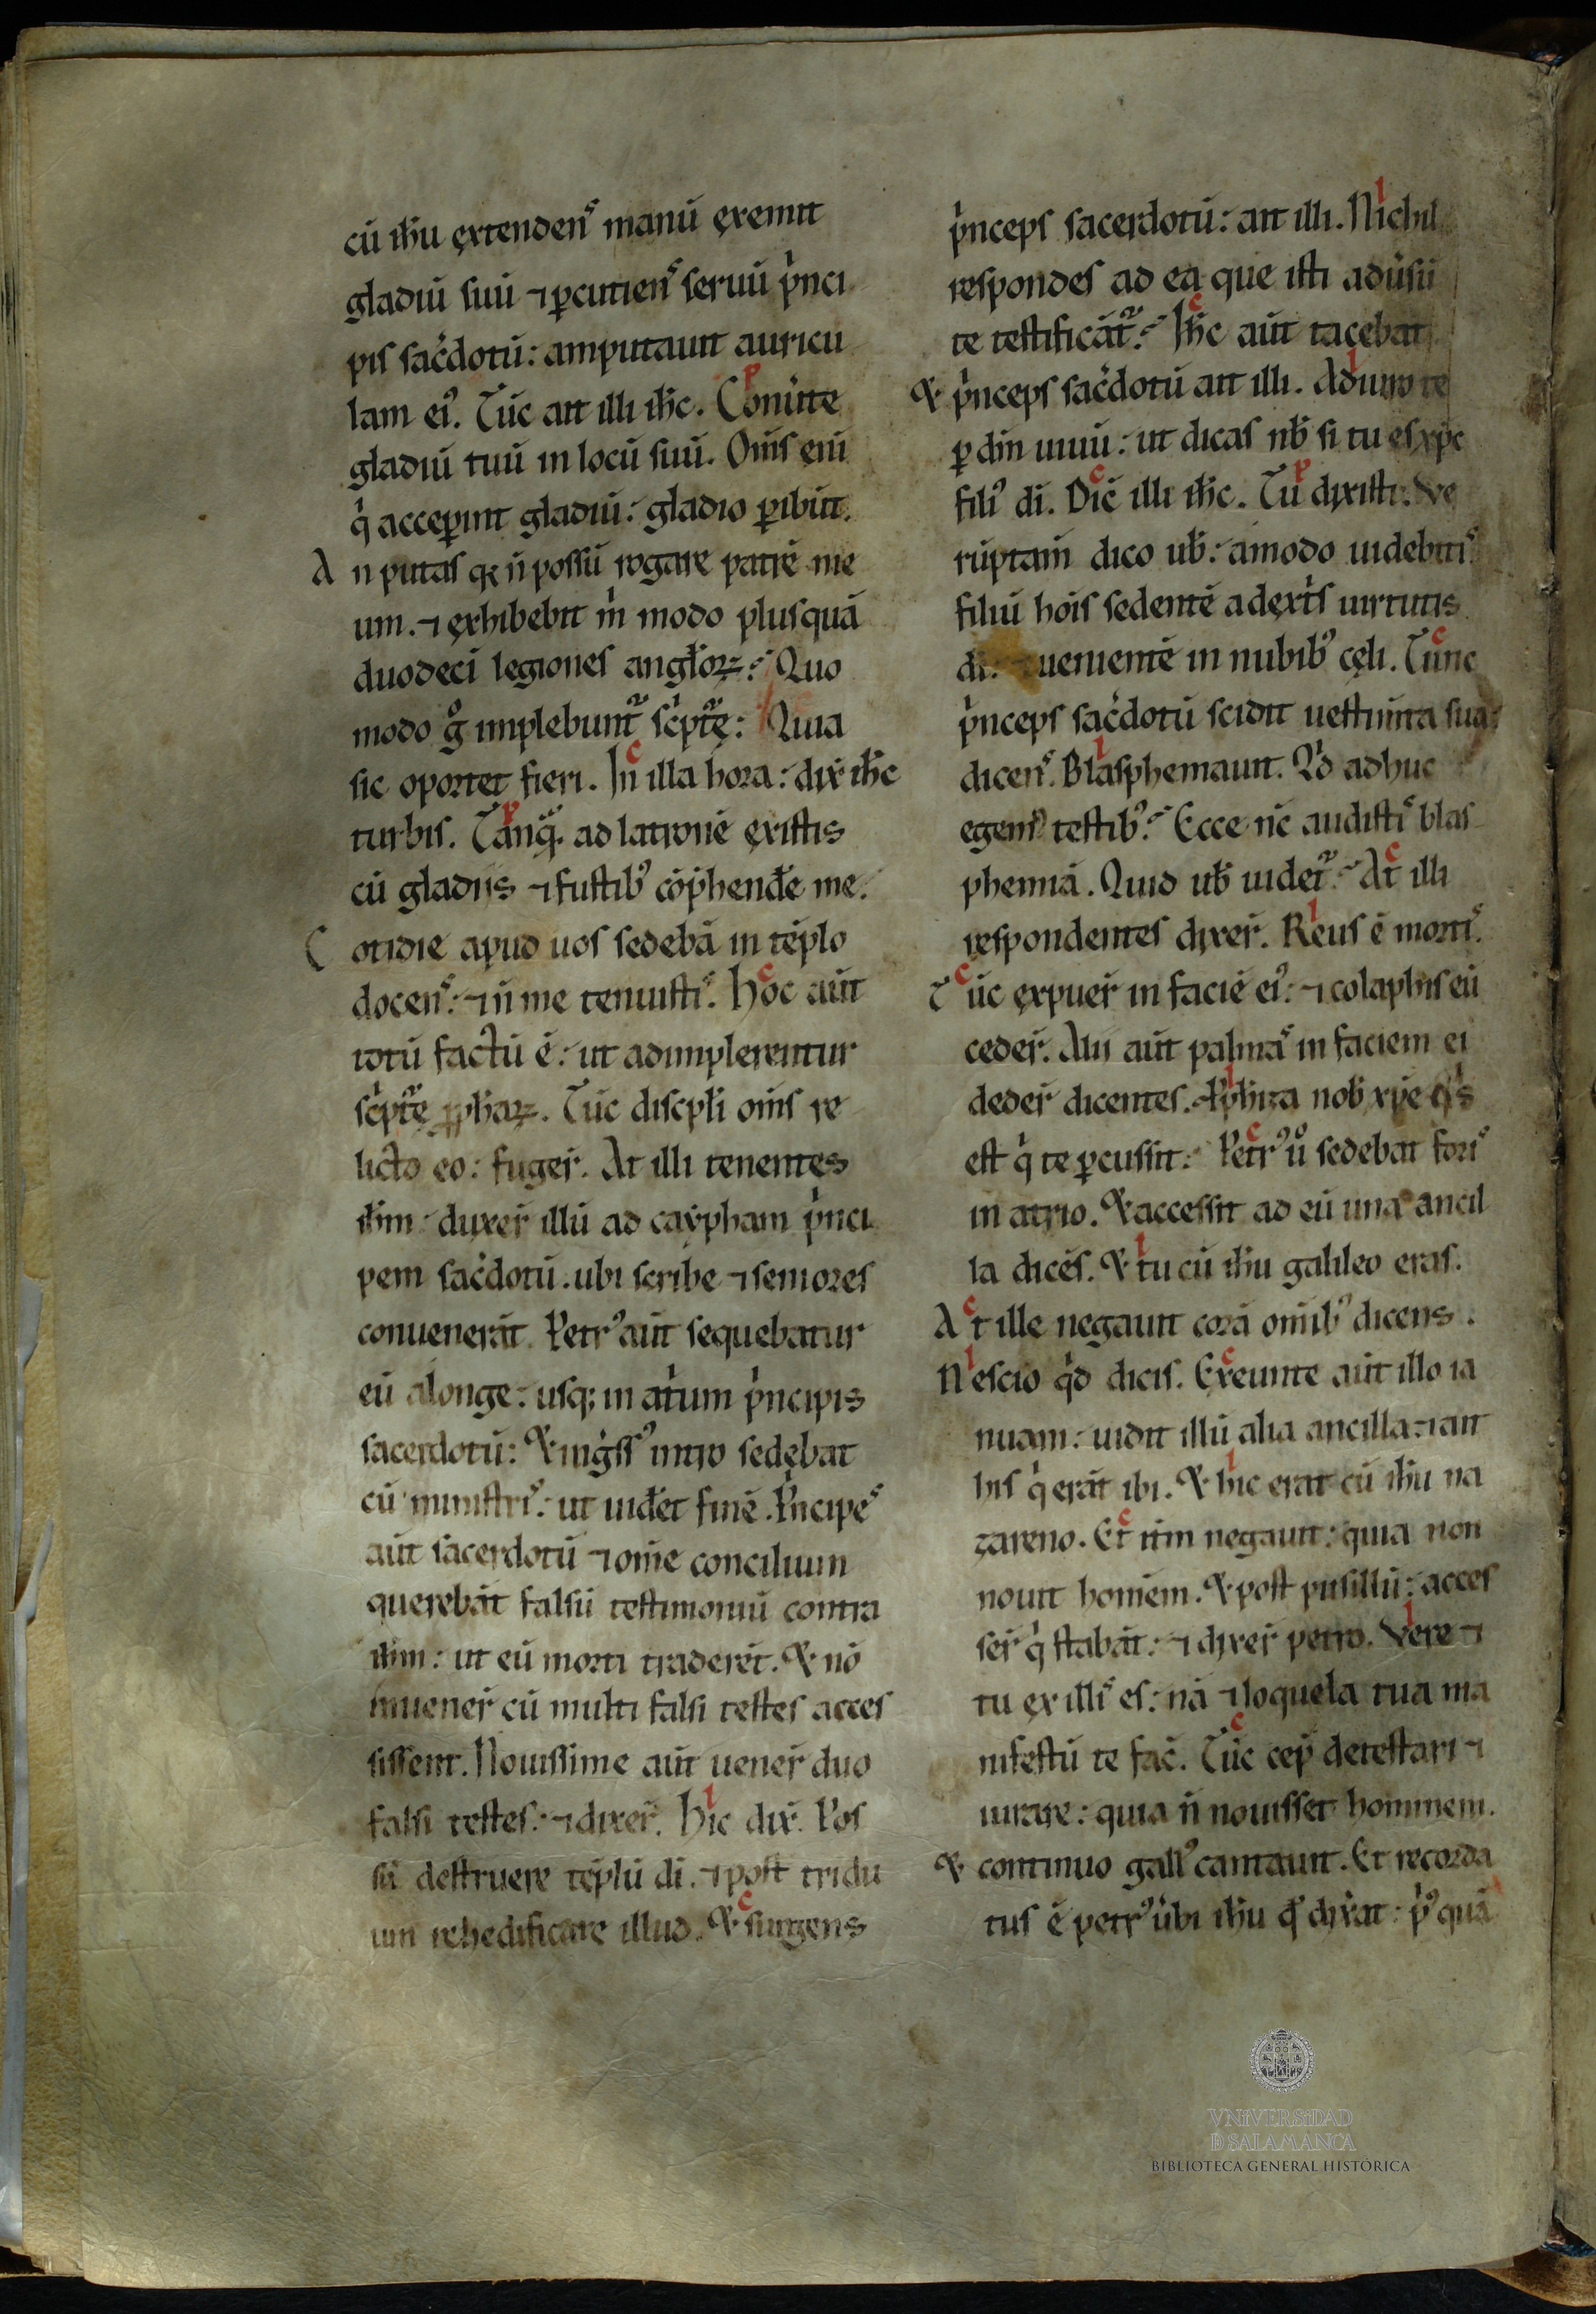 cū ih̅u ęxtendenˢ manū ęxemit
gladiū suū ⁊ ꝑcutienˢ seruū p̍nci
pis sac̍dotū: amputauit auricu
lam ei⁹. Tūc ait illi ih̅c. Cōuͥte
gladiū tuū in locū suū. Om̅s eni̅
q̍ acceꝑint gladiū: gladio ꝑibūt.
An putas qꝛ n̅ possū rogare patrē me
um. ⁊ ęxhibebit m̍ modo plusquā
duodeci̅ legiones angl̅oꝝ? Quo
modo g̊ implebunt᷑ sc̍pt᷑ę: Quia
sic oportet fieri. In illa hora: dix̅ ih̅c
turbis. Tanq̅ᷓ ad latronē ęxistis
cū gladiis ⁊ fustib⁹ cōp̅henđe me.
Cotidie apud uos sedebā in tēplo
docenˢ: ⁊ n̅ me tenuistiˢ. Hoc aūt
totū factū ē: ut adimplerentur
sc̍pt᷑ę ꝓph̅aꝝ. Tūc discpl̅i om̅s re
licto eo: fuger̅. At illi tenentes
ih̅m duxer̅ illū ad caẏpham p̍nci
pem sac̍dotū. ubi scribe ⁊ seniores
conuenerāt. Petr⁹ aūt sequebatur
eū alonge: usqꝫ in at̍um p̍ncipis
sacerdotū: ⁊ ing̍ss⁹ intro sedębat
cū ministriˢ: ut uiđet finē. P̍ncipeˢ
aūt sacerdotū ⁊ om̅e concilium
querebāt falsū testimoniū contra
ih̅m: ut eū morti traderēt. ⁊ nō
inuener̅ cū multi falsi testes acces
sissent. Nouissime aūt uener̅ duo
falsi testes: ⁊ dixer̅. Hic dix̅. Pos
sū destruere tēplū di̅. ⁊ post tridu
um rehedificare illud. ⁊ surgens
p̍nceps sacerdotū: ait illi. Nichil
respondes ad ea que isti adūsū
te testificāt᷑? Ih̅c aūt tacebat
⁊ p̍nceps sac̍dotū ait illi. Adiuro te
ꝑ dm̅ uiuū: ut dicas nb̅ si tu es xp̅c
fili⁹ di̅. Dic̅ illi ih̅c. Tu dixisti. Ve
rūptam̅ dico ub̅: amodo uidebitiˢ
filiū hoi̅s sedentē adęxt̍s uirtutis
di̅: ⁊ uenientē in nubib⁹ cęli. Tunc
p̍nceps sac̍dotū scidit uestim̅ta sua:
dicenˢ. Blasphemauit. Q̍d adhuc
egem⁹ testib⁹? Ecce nc̅ audistiˢ blas
phemiā. Quid ub̅ uidet᷑? At illi
respondentes dixer̅. Reus ē mortiˢ.
Tūc ęxpuer̅ in faciē ei⁹: ⁊ colaphis eū
ceder̅. Alii aūt palmaˢ in faciem ei
deder̅ dicentes. Ꝓph̅iza nob̅ xp̅e q̍s
est q̍ te ꝑcussit: Petr⁹ ů sedebat foriˢ
in atrio. ⁊ accessit ad eū una ancil
la dicēs. ⁊ tu cū ih̅u galileo eras.
At ille negauit corā om̅ib⁹ dicens.
Nescio q̍d dicis. Exeunte aūt illo ia
nuam: uidit illū alia ancilla: ⁊ ait
his q̍ erāt ibi. ⁊ hic erat cū ih̅u na
zareno. Et itm̅ negauit: quia non
nouit hom̅em. ⁊ post pusillū: acces
ser̅ q̍ stabāt: ⁊ dixer̅ petro. Vere ⁊
tu ęx illiˢ es: nā ⁊ loquela tua ma
nifestū te fac̅. Tūc cep̅ detestari ⁊
iurare: quia n̅ nouisset hominem.
⁊ continuo gall⁹ cantauit. Et recorda
tus ē petr⁹ ūbi ih̅u qͩ dix̍at: p̍⁹quā
VNiVERSiDAD
D SALAMANCA
BIBLIOTECA GENERAL HISTÓRICA